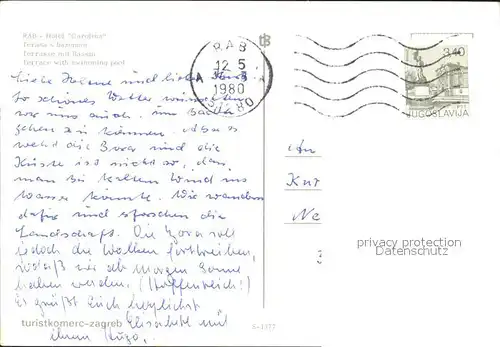 RAB - Hotel "Carolina"
Terasa s bazenom
Terrasse mit Bassin
Terrace with swimming pool
Liebe und liebe
so schönes Wetter wünschten
wir uns auch, um baden
gehen zu können. Aber es
weht die Bora und die
Küste ist nicht so, dass
man bei kaltem Wind ins
Wasser könnte. Wir wandern
dafür und erforschen die
Landschaft. Die Bora soll
jedoch die Wolken fortreiben,
sodaß wir ab morgen Sonne
haben werden. (Hoffentlich!)
Es grüßt Euch herzlichst
Elisabeth mit
ihrem Hugo.
turistkomerc-zagreb
S-1377
RAB
12 5
A
1980
3.40
JUGOSLAVIJA
An
Kur
Ne
privacy protection
Datenschutz